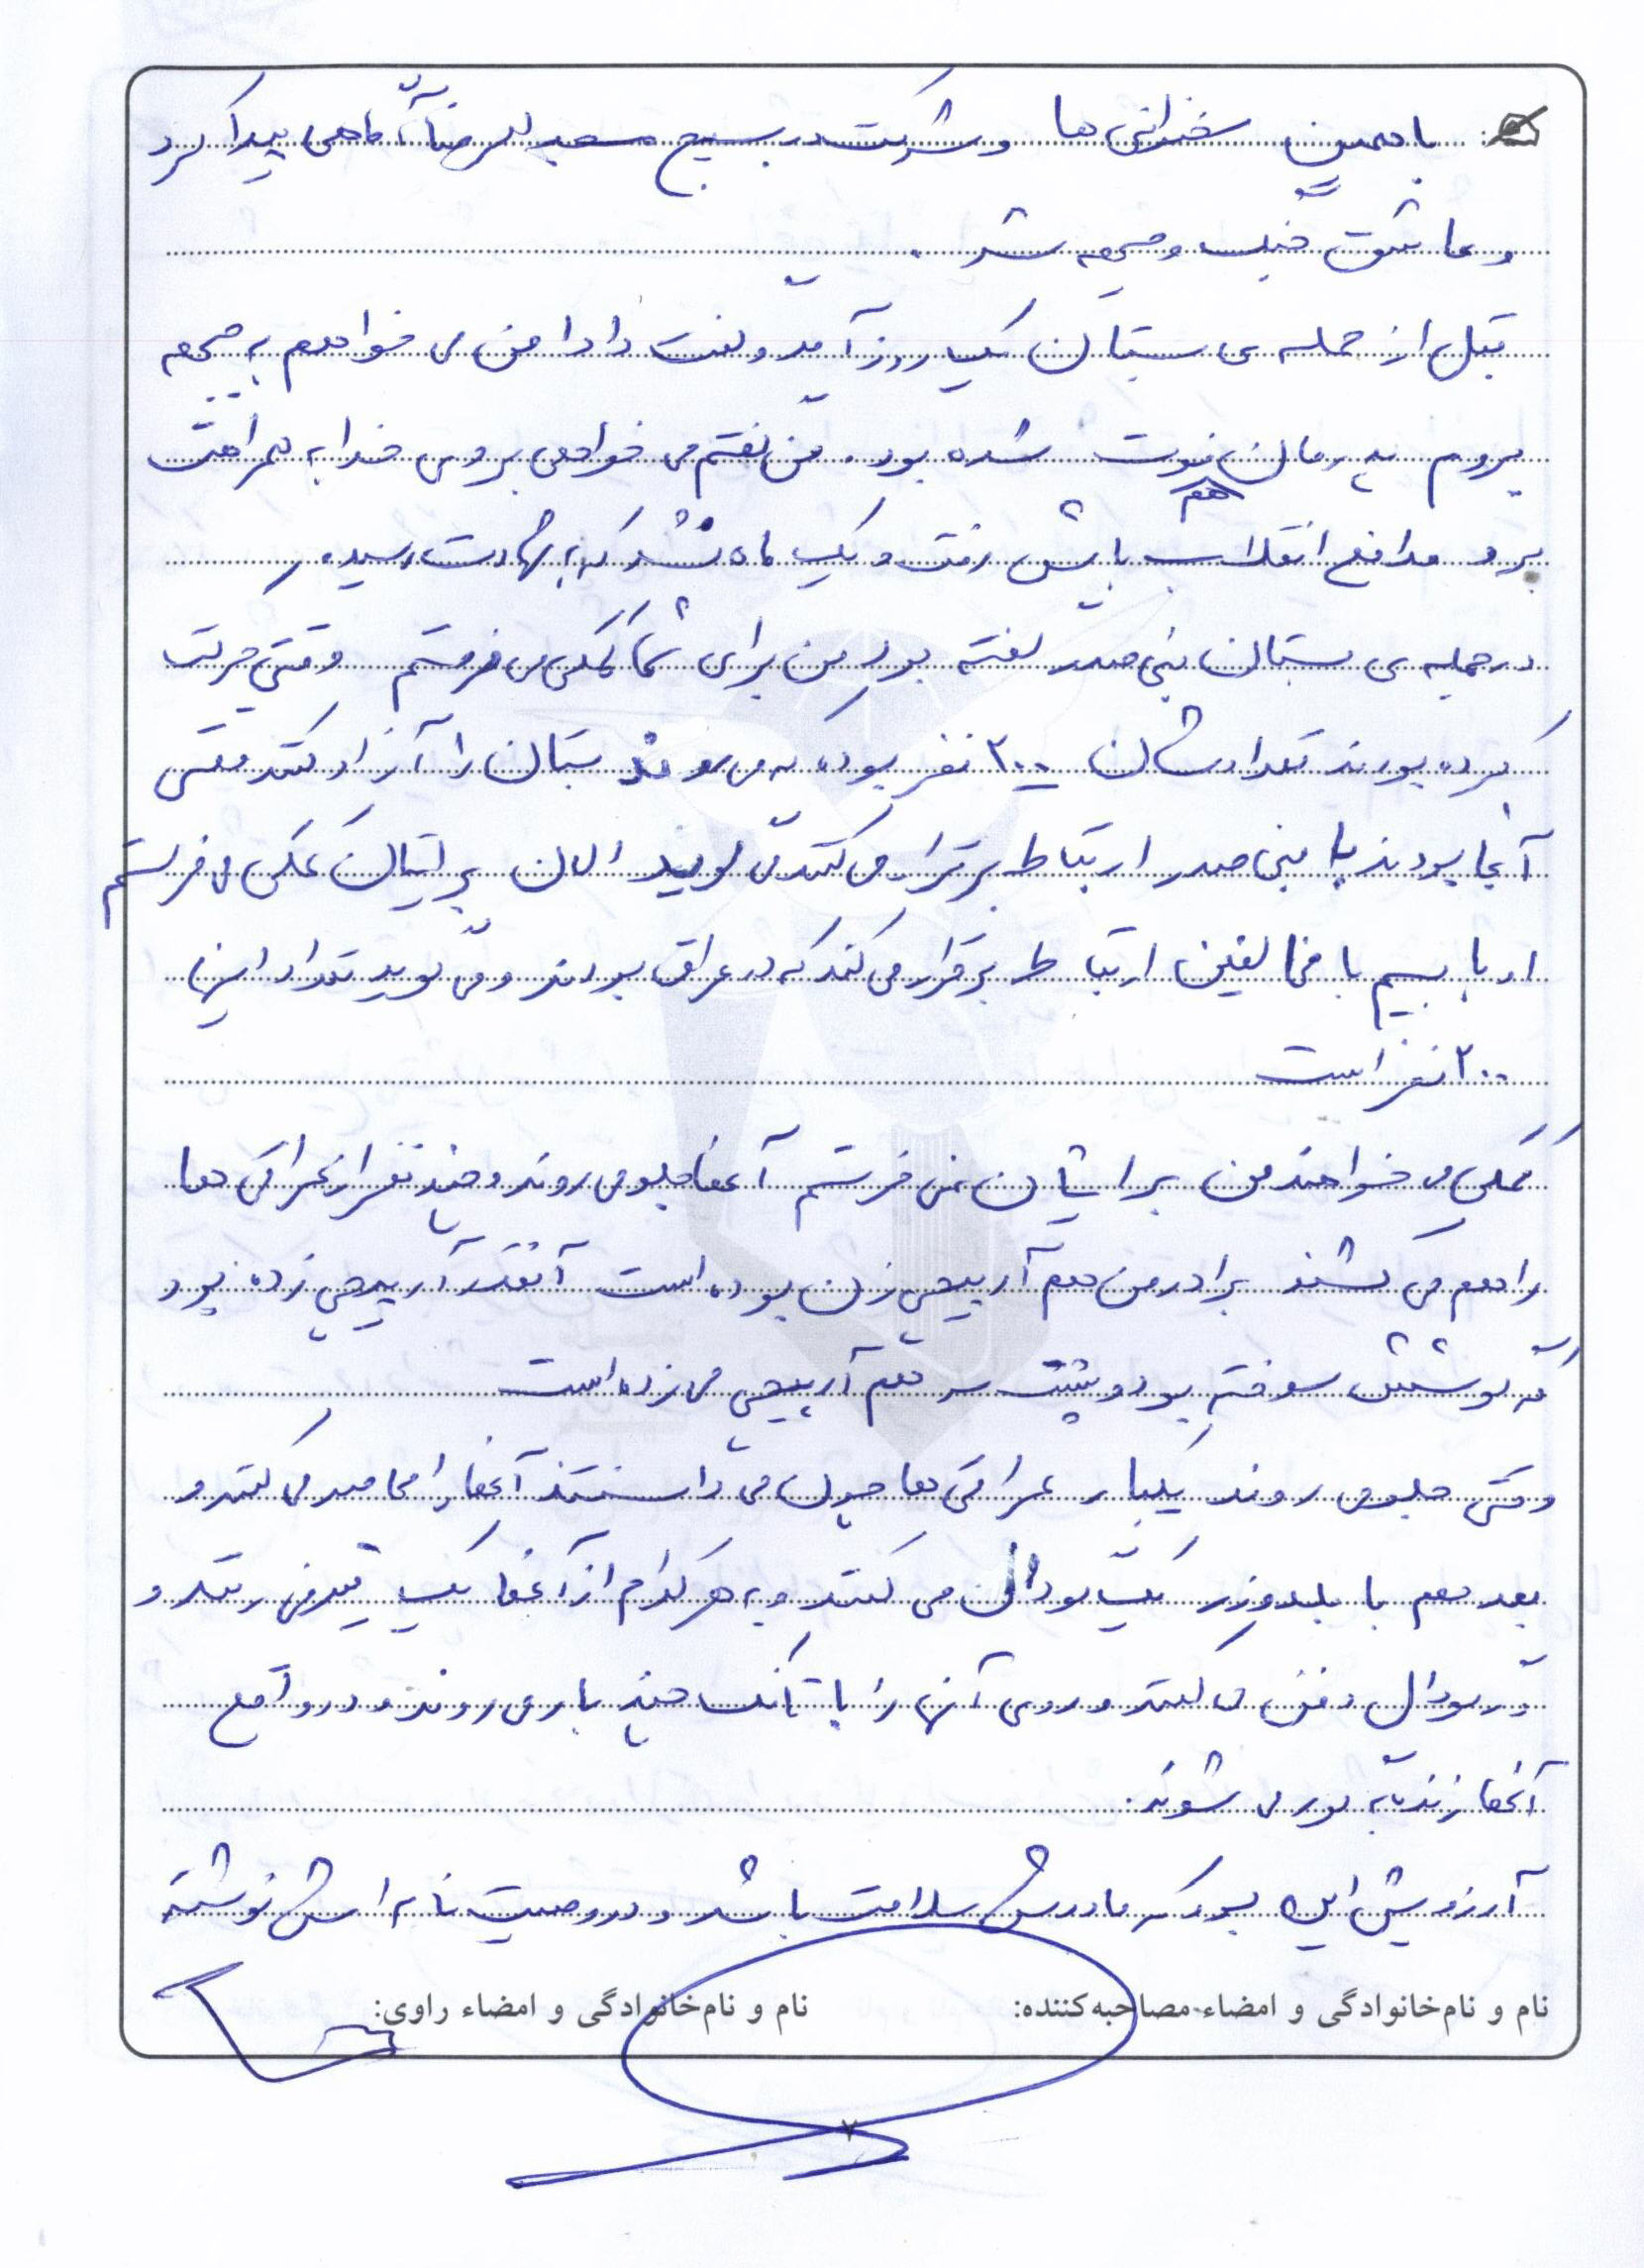 با همین سخنرانی ها و شرکت در بسیج مسجد آگاهی پیدا کرد
و عاشق جنگ و جبهه شد .
قبل از حمله ی بستان یک روز آمد و گفت دادا من می خواهم به جبهه
بروم پدرمان هم فوت شده بود . من گفتم می خواهی بروی خدا به همراهت
برو مدافع انقلاب باش رفت و یک ماه نشد که به شهادت رسید .
در حمله ی بستان بنی صدر گفته بود من برای شما کمکی می فرستم وقتی حرکت
کرده بودند تعدادشان ۲۰۰ نفر بوده که می روند بستان را آزاد کنند وقتی
آنجا بودند با بنی صدر ارتباط برقرار می کنند می گویند الان برایتان کمکی می فرستم
او با بیسیم با مخالفین ارتباط برقرار می کند که در عراق بودند و می گوید تعداد اینها
۲۰۰ نفر است
کمکی می خواهند من برایشان نمی فرستم آنها جلو می روند و چند نفر از عراقی ها
را هم می کشند برادر من هم آرپیچی زن بوده است آنقدر آرپیچی زده بود
که گوشش سوخته بود و پشت سر هم آرپیچی می زده است
وقتی جلو می روند یکبار عراقی ها چون می دانستند آنها را محاصره می کنند و
بعد هم با بلدوزر یک گودال می کنند و به هر کدام از آنها یک تیر می زنند و
در گودال دفن می کنند و روی آنها را با تانک چند بار می روند و در واقع
آنها زنده به گور می شوند .
آرزویش این بود که مادرش سلامت باشد و در وصیت نامه اش نوشته
نام و نام‌خانوادگی و امضاء مصاحبه‌کننده: نام و نام‌خانوادگی و امضاء راوی:
۷